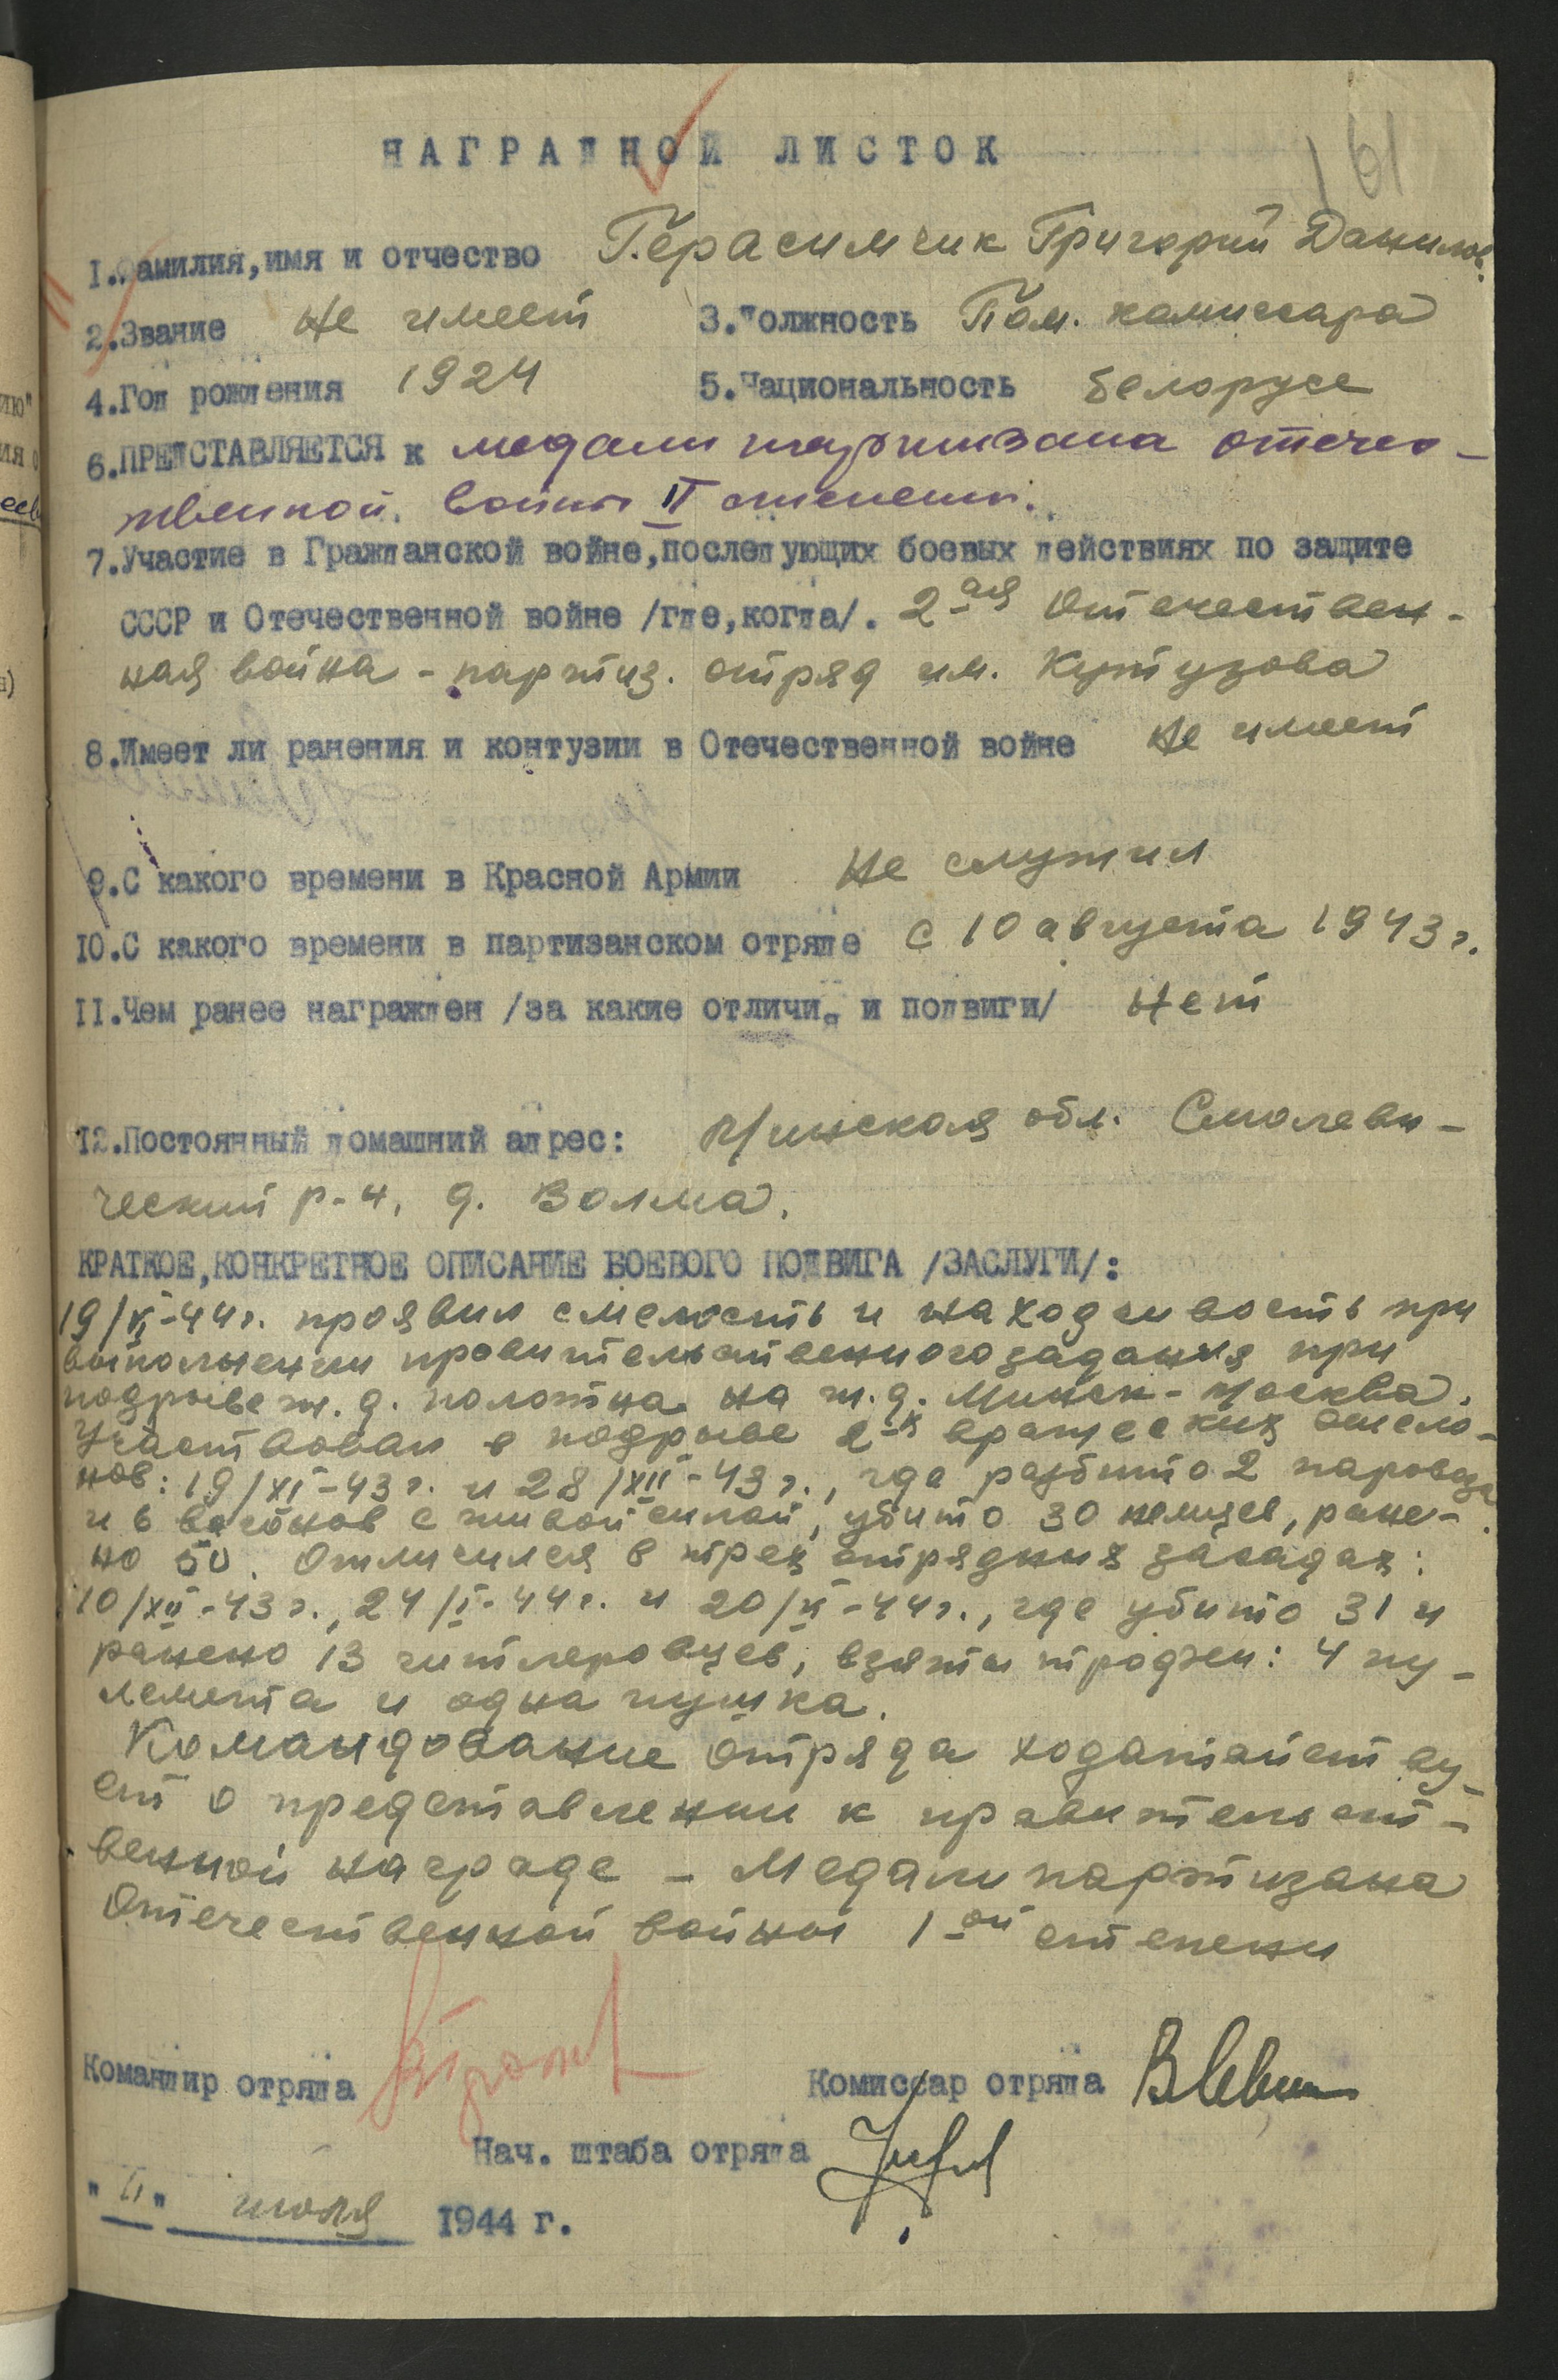 161
НАГРАДНОЙ ЛИСТОК
1.Фамилия,имя и отчество Герасимчик Григорий Данилов.
2.Звание не имеет 3.Должность Пом. комиссара
4.Год рождения 1924 5.Национальность белорусс
6.ПРЕДСТАВЛЯЕТСЯ к медали партизана отечес-
твенной войны II степени.
7.Участие в Гражданской войне,последующих боевых действиях по защите
СССР и Отечественной войне /где,когда/. 2-ая Отечествен-
ная война - партиз. отряд им. Кутузова
8.Имеет ли ранения и контузии в Отечественной войне не имеет
9.С какого времени в Красной Армии не служил
10.С какого времени в партизанском отряде с 10 августа 1943 г.
11.Чем ранее награжден /за какие отличи. и подвиги/ нет
12.Постоянный домашний адрес: Минская обл. Смолеви-
ческий р-н, д. Волма.
КРАТКОЕ,КОНКРЕТНОЕ ОПИСАНИЕ БОЕВОГО ПОДВИГА /ЗАСЛУГИ/:
19/VI-44г. проявил смелость и находчивость при
выполнении правительственного задания при
подрыве ж.д. полотна на ж.д. Минск-Москва.
Участвовал в подрыве 2-х вражеских эшело-
нов: 19/XI-43г. и 28/XII-43г., где разбито 2 паровоза
и 6 вагонов с живой силой, убито 30 немцев, ране-
но 50. Отличился в трех отрядных засадах:
10/XII-43г., 24/I-44г. и 20/VI-44г., где убито 31 и
ранено 13 гитлеровцев, взяты трофеи: 4 пу-
лемета и одна пушка.
Командование отряда ходатайству-
ет о представлении к правительст-
венной награде - Медали партизана
Отечественной войны 1-ой степени
Командир отряда Комиссар отряда
Нач. штаба отряда
" " июля 1944 г.